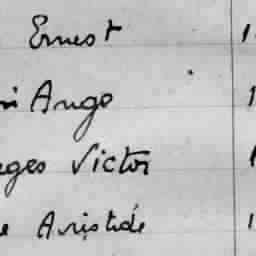 Ernest 1
Ango 1
ges Victor 1
e Aristide 1